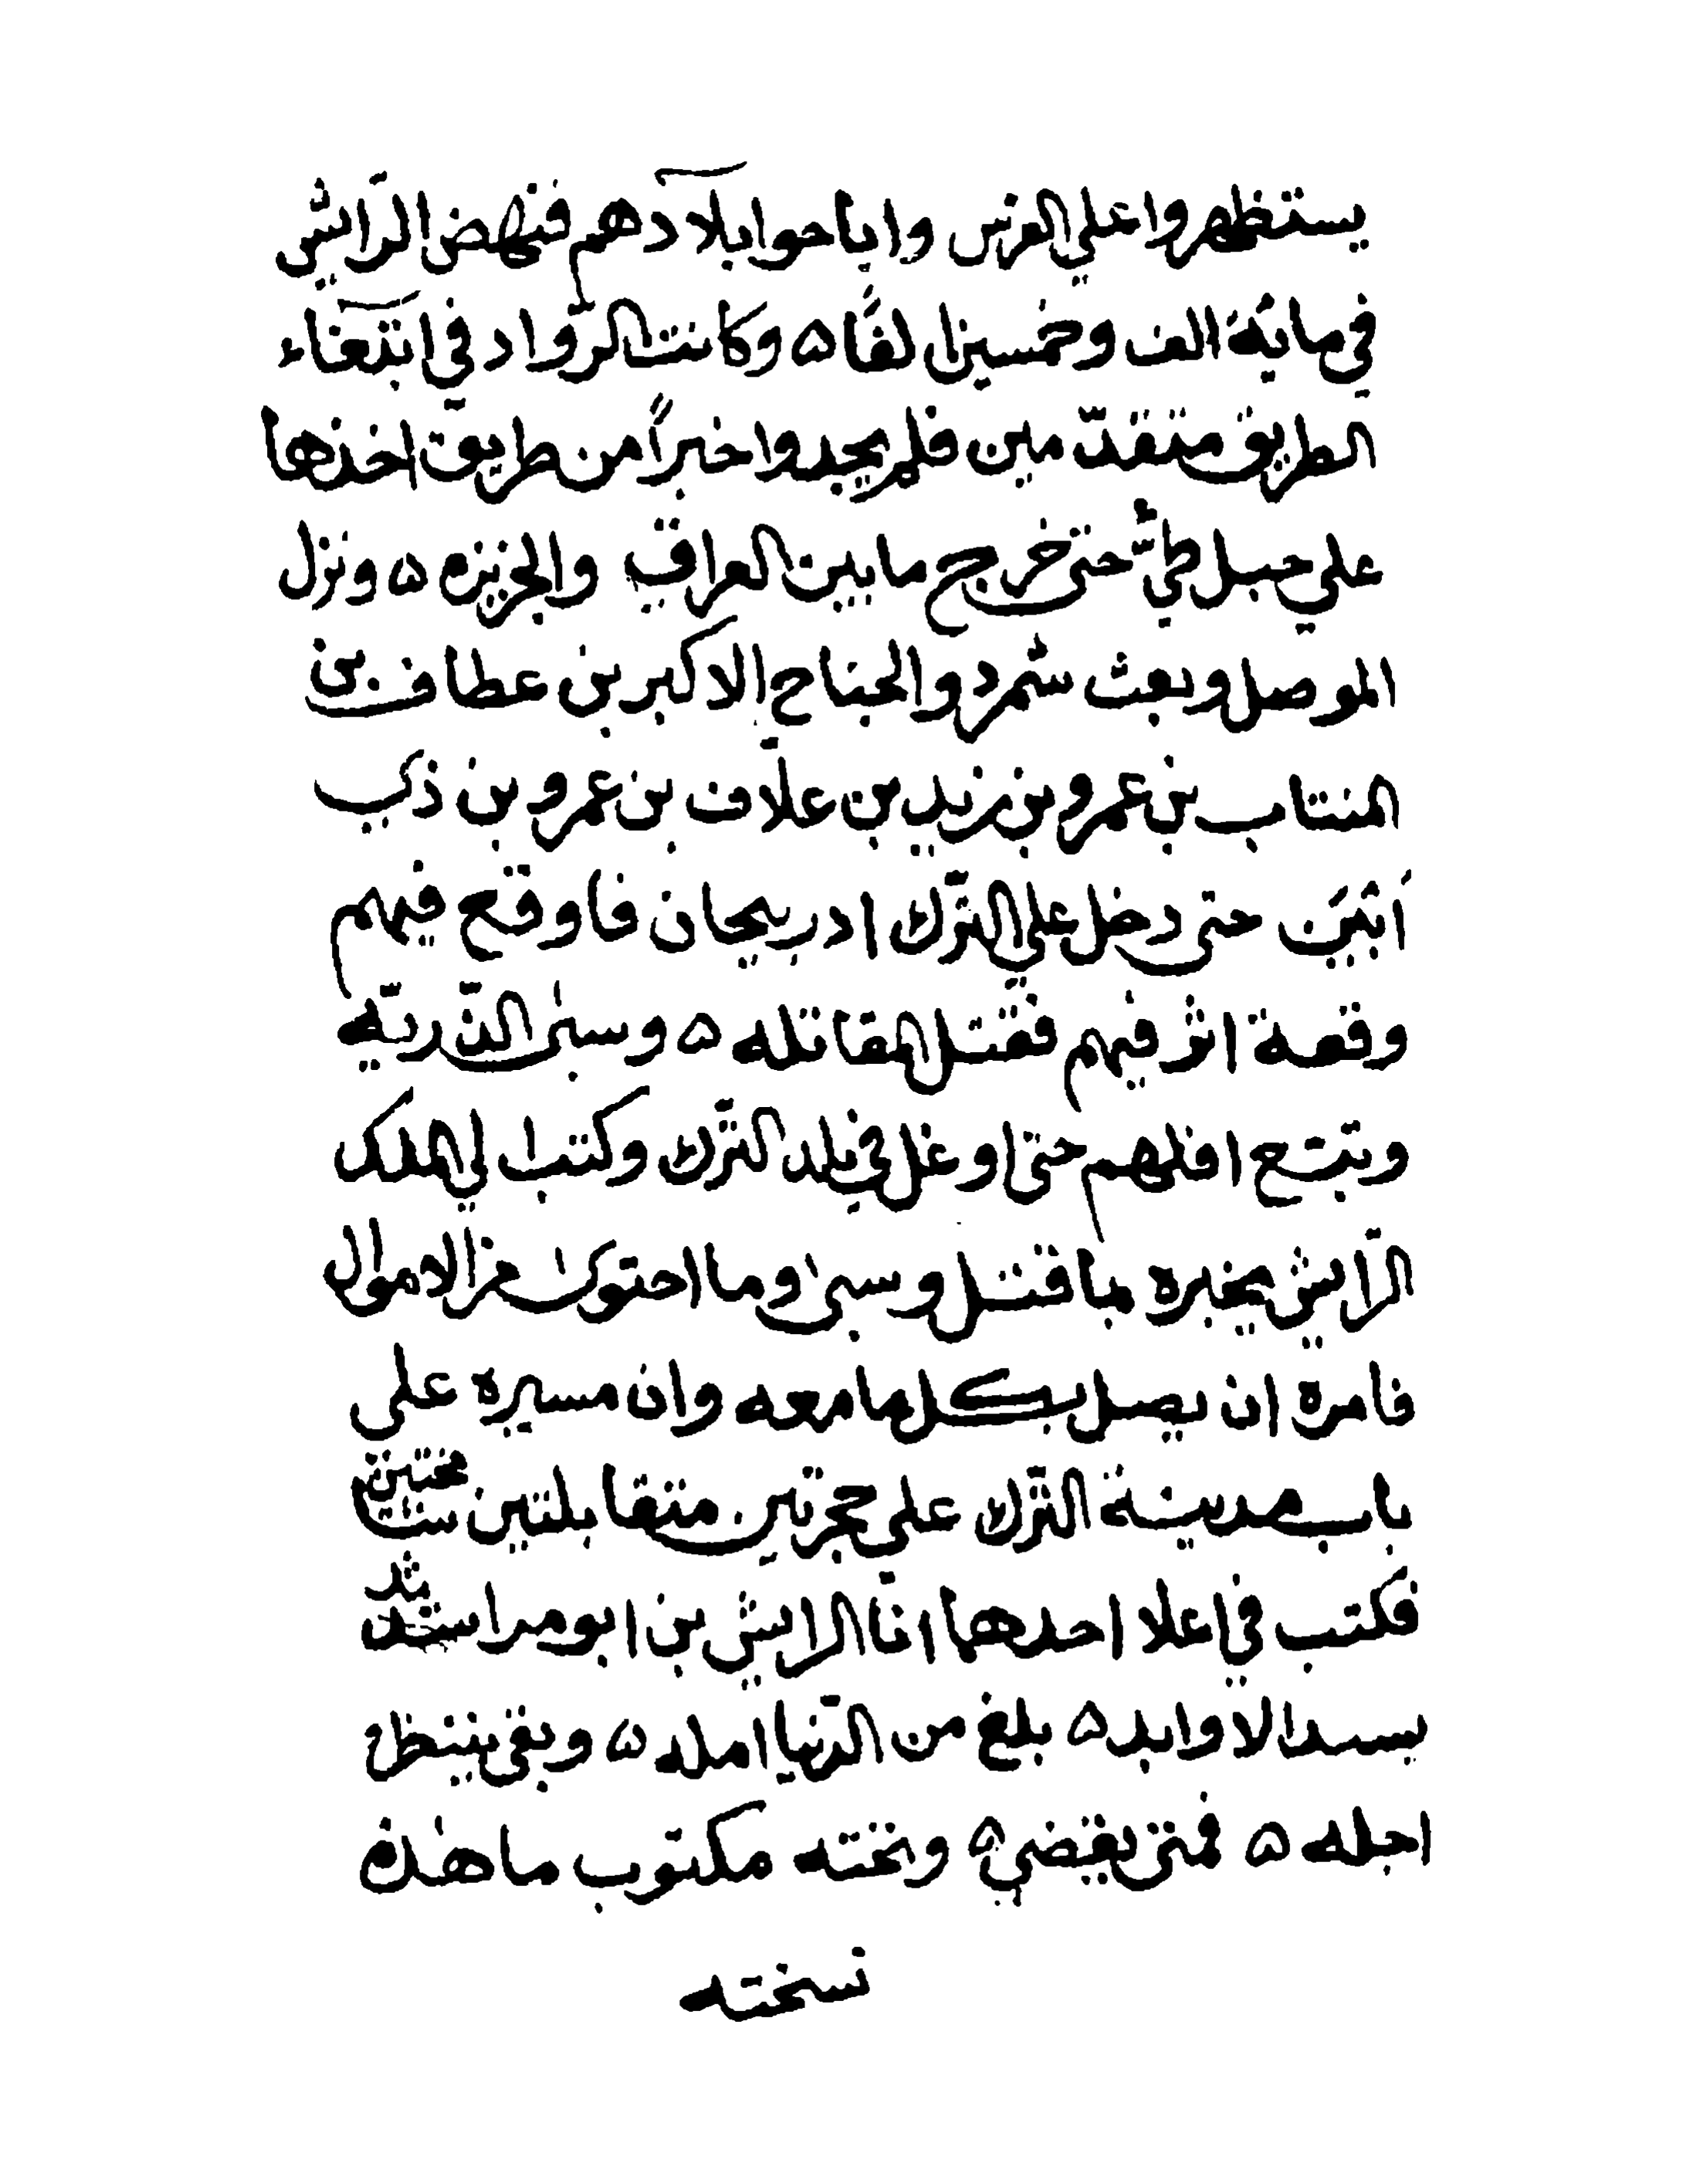 يستظهروا علي الفرس واباحوا بلادهم فنهض الرّايش
في مايه الف وخمسين الفًا ۵ وكانت الرّواد في ابتغاء
الطريق متقدّمين فلم يجدوا خبراً من طريق اخذها
علي جبل طيّ حتى خرج مابين العراق والجزيره ۵ ونزل
الموصل وبعث شمر ذو الجناح الاكبر بن عطاف بن
المنتاب بن عمرو بن زيد بن علاّف بن عمرو بن ذي
أبْيَن حتى دخل علي الترّك ادربيجان فاوقع فيهم
وقعة اثر فيهم فقتل المقاتله ۵ وسبى الذّريّه
وتبتع افلهم حتى اوغل في بلد الترّك وكتب الي الملك
الرّايش يخبره بما قتل وسبى وما احتوى من الاموال
فامره ان يصل بكل ما معه وان مسيره على
باب مدينة الترّك على حجرتين متقابلتين
فكتب في اعلا احدها انا الرايش بن ابو مراشد
سيد الاوابد ۵ بلغ من الدّنيا امله ۵ وبقي ينتظر
اجله ۵ فمتى يقضي ۵ وتحته مكتوب ما هذه
نسخته